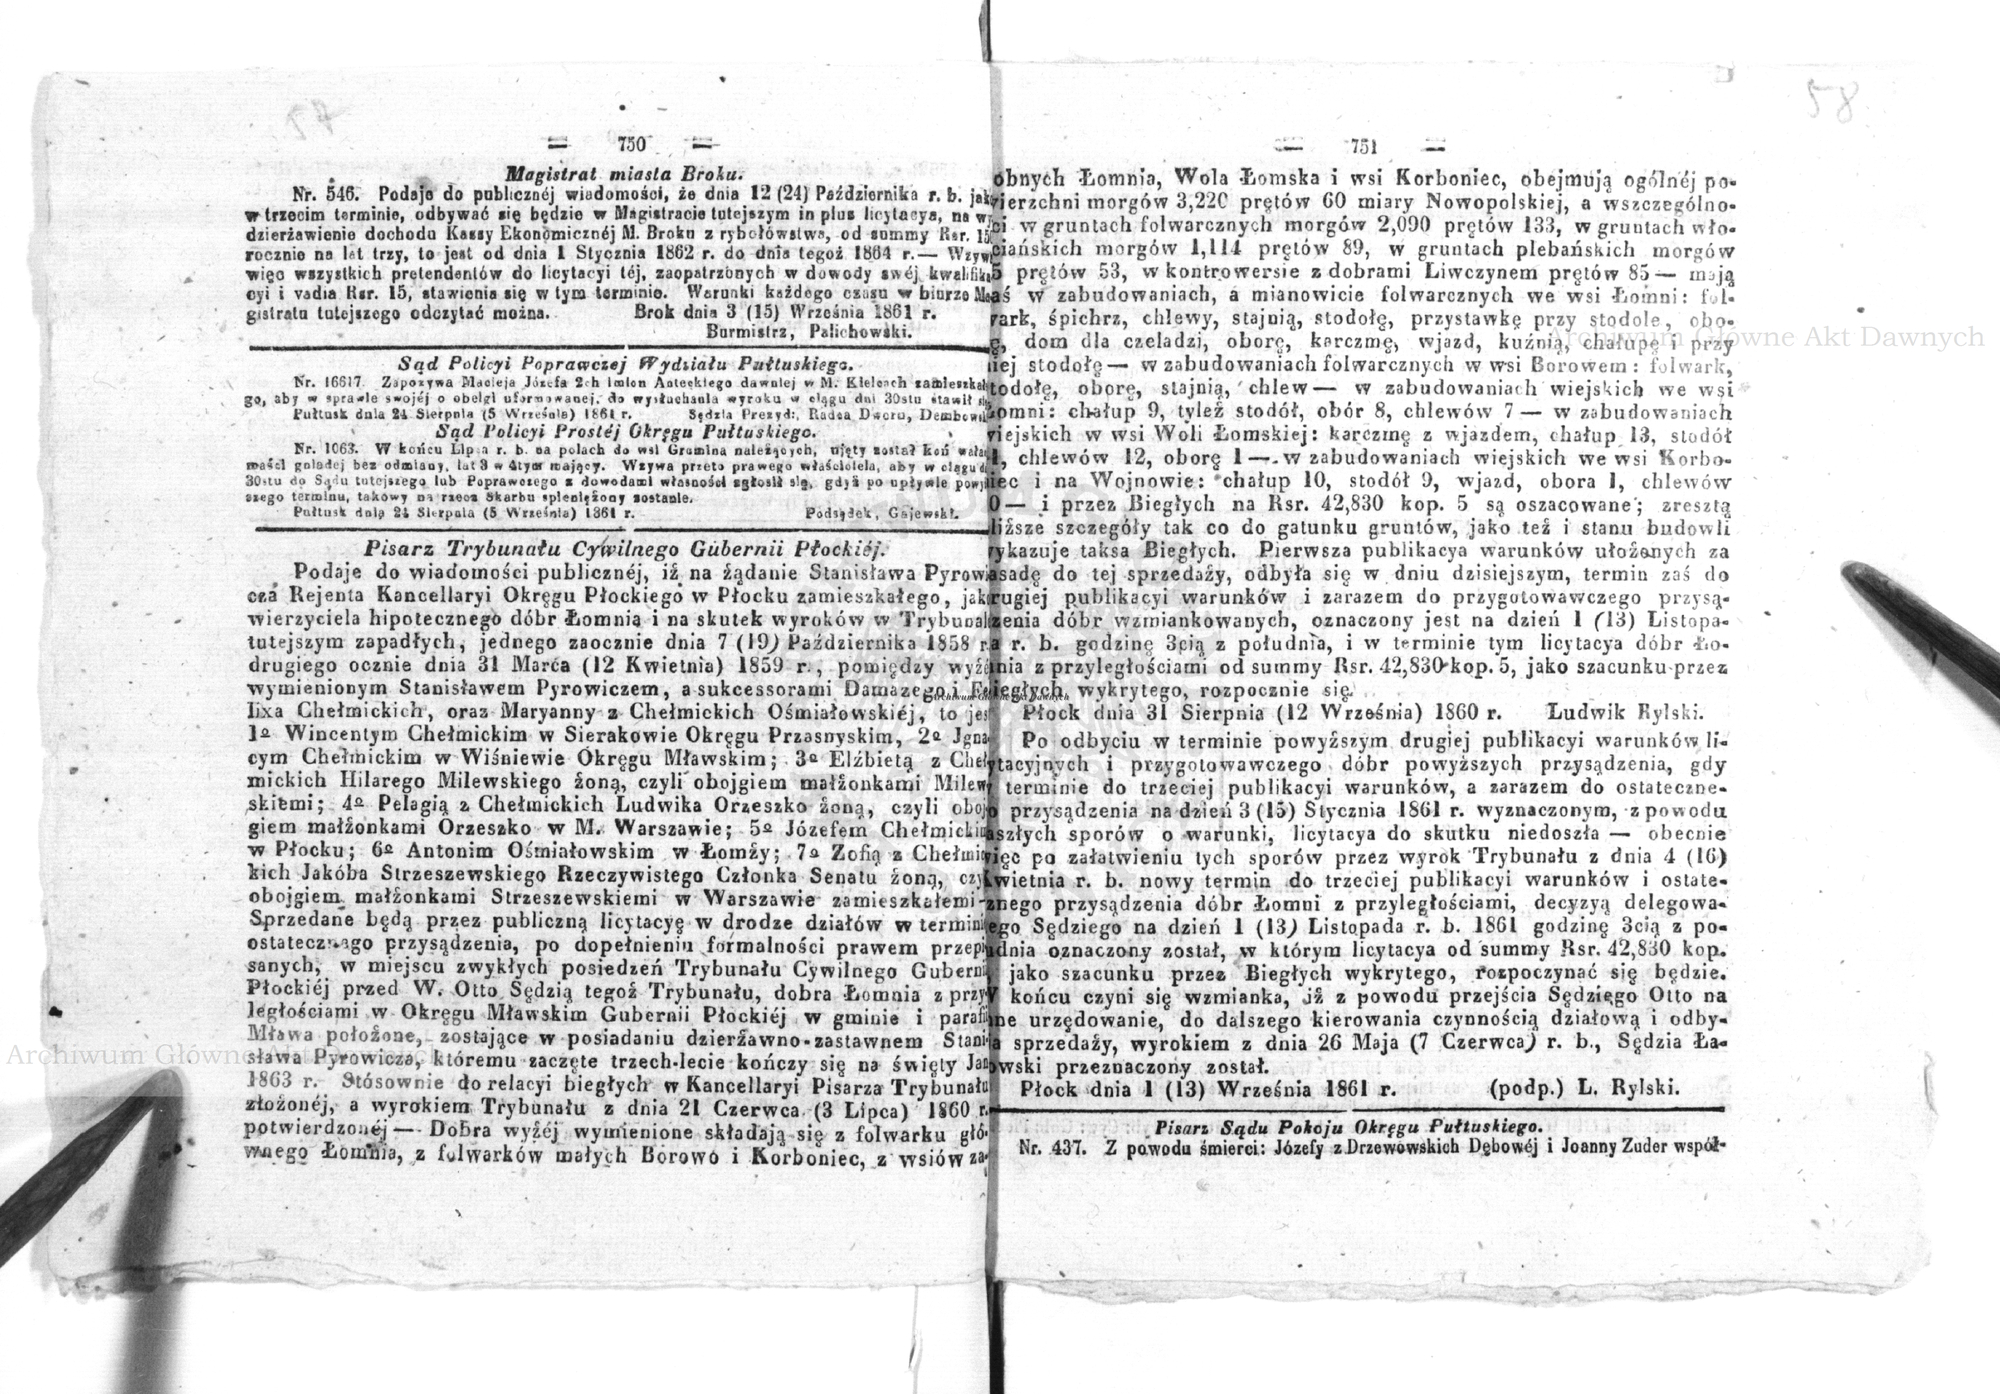 = 750 =
Magistrat miasta Broku.
Nr. 546. Podaje do publicznéj wiadomości, że dnia 12 (24) Października r. b. jak
w trzecim terminie, odbywać się będzie w Magistracie tutejszym in plus licytacya, na wy
dzierżawienie dochodu Kassy Ekonomicznéj M. Broku z rybołówstwa, od summy Rsr. 15
rocznie na lat trzy, to jest od dnia 1 Stycznia 1862 r. do dnia tegoż 1864 r.— Wzyw
więc wszystkich pretendentów do licytacyi téj, zaopatrzonych w dowody swéj kwalifika
cyi i vadia Rsr. 15, stawienia się w tym terminie. Warunki każdego czasu w biurze Ma
gistratu tutejszego odczytać można. Brok dnia 3 (15) Września 1861 r.
Burmistrz, Palichowski.
Sąd Policyi Poprawczej Wydziału Pułtuskiego.
Nr. 16617. Zapozywa Macieja Józefa 2ch imion Anteckiego dawniej w M. Kielcach zamieszkałe
go, aby w sprawie swojéj o obelgi uformowanej, do wysłuchania wyroku w ciągu dni 30stu stawił się
Pułtusk dnia 24 Sierpnia (5 Września) 1861 r. Sędzia Prezyd:, Radca Dworu, Dembowsk
Sąd Policyi Prostéj Okręgu Pułtuskiego.
Nr. 1063. W końcu Lipca r. b. na polach do wsi Gromina należących, ujęty został koń wała
maści gniadej bez odmiany, lat 3 w 4tym mający. Wzywa przeto prawego właściciela, aby w ciągu d
30stu do Sądu tutejszego lub Poprawczego z dowodami własności zgłosił się, gdyż po upływie powy
szego terminu, takowy na rzecz Skarbu spieniężony zostanie.
Pułtusk dnia 24 Sierpnia (5 Września) 1861 r. Podsędek, Gajewski.
Pisarz Trybunału Cywilnego Gubernii Płockiéj.
Podaje do wiadomości publicznéj, iż na żądanie Stanisława Pyrowi
cza Rejenta Kancellaryi Okręgu Płockiego w Płocku zamieszkałego, jako
wierzyciela hipotecznego dóbr Łomnia i na skutek wyroków w Trybunal
tutejszym zapadłych, jednego zaocznie dnia 7 (19) Października 1858 r.
drugiego ocznie dnia 31 Marca (12 Kwietnia) 1859 r., pomiędzy wyżé
wymienionym Stanisławem Pyrowiczem, a sukcessorami Damazego i Fe
lixa Chełmickich, oraz Maryanny z Chełmickich Ośmiałowskiéj, to jes
1o Wincentym Chełmickim w Sierakowie Okręgu Przasnyskim, 2o Jgna
cym Chełmickim w Wiśniewie Okręgu Mławskim; 3o Elżbietą z Cheł
mickich Hilarego Milewskiego żoną, czyli obojgiem małżonkami Milew
skiemi; 4o Pelagią z Chełmickich Ludwika Orzeszko żoną, czyli oboj
giem małżonkami Orzeszko w M. Warszawie; 5o Józefem Chełmickim
w Płocku; 6o Antonim Ośmiałowskim w Łomży; 7o Zofią z Chełmic
kich Jakóba Strzeszewskiego Rzeczywistego Członka Senatu żoną, czy
obojgiem małżonkami Strzeszewskiemi w Warszawie zamieszkałemi-
Sprzedane będą przez publiczną licytacyę w drodze działów w termini
ostatecznego przysądzenia, po dopełnieniu formalności prawem przepi
sanych, w miejscu zwykłych posiedzeń Trybunału Cywilnego Guberni
Płockiéj przed W. Otto Sędzią tegoż Trybunału, dobra Łomnia z przy
ległościami w Okręgu Mławskim Gubernii Płockiéj w gminie i parafii
Mława położone, zostające w posiadaniu dzierżawno-zastawnem Stani
sława Pyrowicza, któremu zaczęte trzech-lecie kończy się na święty Jan
1863 r. Stósownie do relacyi biegłych w Kancellaryi Pisarza Trybunału
złożonéj, a wyrokiem Trybunału z dnia 21 Czerwca (3 Lipca) 1860 r.
potwierdzonéj — Dobra wyżéj wymienione składają się z folwarku głó-
wnego Łomnia, z folwarków małych Borowo i Korboniec, z wsiów za-
58
= 751 =
obnych Łomnia, Wola Łomska i wsi Korboniec, obejmują ogólnéj po-
ierzchni morgów 3,220 prętów 60 miary Nowopolskiej, a wszczególno-
ci w gruntach folwarcznych morgów 2,090 prętów 133, w gruntach wło-
ciańskich morgów 1,114 prętów 89, w gruntach plebańskich morgów
5 prętów 53, w kontrowersie z dobrami Liwczynem prętów 85 — mają
aś w zabudowaniach, a mianowicie folwarcznych we wsi Łomni: fol-
ark, śpichrz, chlewy, stajnią, stodołę, przystawkę przy stodole, obo-
ę, dom dla czeladzi, oborę, karczmę, wjazd, kuźnią, chałupę i przy
iej stodołę — w zabudowaniach folwarcznych w wsi Borowem: folwark,
todołę, oborę, stajnią, chlew — w zabudowaniach wiejskich we wsi
omni: chałup 9, tyleż stodół, obór 8, chlewów 7 — w zabudowaniach
iejskich w wsi Woli Łomskiej: karczmę z wjazdem, chałup 13, stodół
1, chlewów 12, oborę 1 — w zabudowaniach wiejskich we wsi Korbo-
iec i na Wojnowie: chałup 10, stodół 9, wjazd, obora 1, chlewów
0 — i przez Biegłych na Rsr. 42,830 kop. 5 są oszacowane; zresztą
liższe szczegóły tak co do gatunku gruntów, jako też i stanu budowli
ykazuje taksa Biegłych. Pierwsza publikacya warunków ułożonych za
asadę do tej sprzedaży, odbyła się w dniu dzisiejszym, termin zaś do
rugiej publikacyi warunków i zarazem do przygotowawczego przysą-
zenia dóbr wzmiankowanych, oznaczony jest na dzień 1 (13) Listopa-
a r. b. godzinę 3cią z południa, i w terminie tym licytacya dóbr Ło-
nia z przyległościami od summy Rsr. 42,830 kop. 5, jako szacunku przez
iegłych wykrytego, rozpocznie się.
Płock dnia 31 Sierpnia (12 Września) 1860 r. Ludwik Rylski.
Po odbyciu w terminie powyższym drugiej publikacyi warunków li-
ytacyjnych i przygotowawczego dóbr powyższych przysądzenia, gdy
terminie do trzeciej publikacyi warunków, a zarazem do ostateczne-
o przysądzenia na dzień 3 (15) Stycznia 1861 r. wyznaczonym, z powodu
aszłych sporów o warunki, licytacya do skutku niedoszła — obecnie
ięc po załatwieniu tych sporów przez wyrok Trybunału z dnia 4 (16)
wietnia r. b. nowy termin do trzeciej publikacyi warunków i ostate-
znego przysądzenia dóbr Łomni z przyległościami, decyzyą delegowa-
ego Sędziego na dzień 1 (13) Listopada r. b. 1861 godzinę 3cią z po-
udnia oznaczony został, w którym licytacya od summy Rsr. 42,830 kop.
jako szacunku przez Biegłych wykrytego, rozpoczynać się będzie.
W końcu czyni się wzmianka, iż z powodu przejścia Sędziego Otto na
ne urzędowanie, do dalszego kierowania czynnością działową i odby-
a sprzedaży, wyrokiem z dnia 26 Maja (7 Czerwca) r. b., Sędzia Ła-
owski przeznaczony został.
Płock dnia 1 (13) Września 1861 r. (podp.) L. Rylski.
Pisarz Sądu Pokoju Okręgu Pułtuskiego.
Nr. 437. Z powodu śmierci: Józefy z Drzewowskich Dębowéj i Joanny Zuder współ-
Archiwum Główne Akt Dawnych